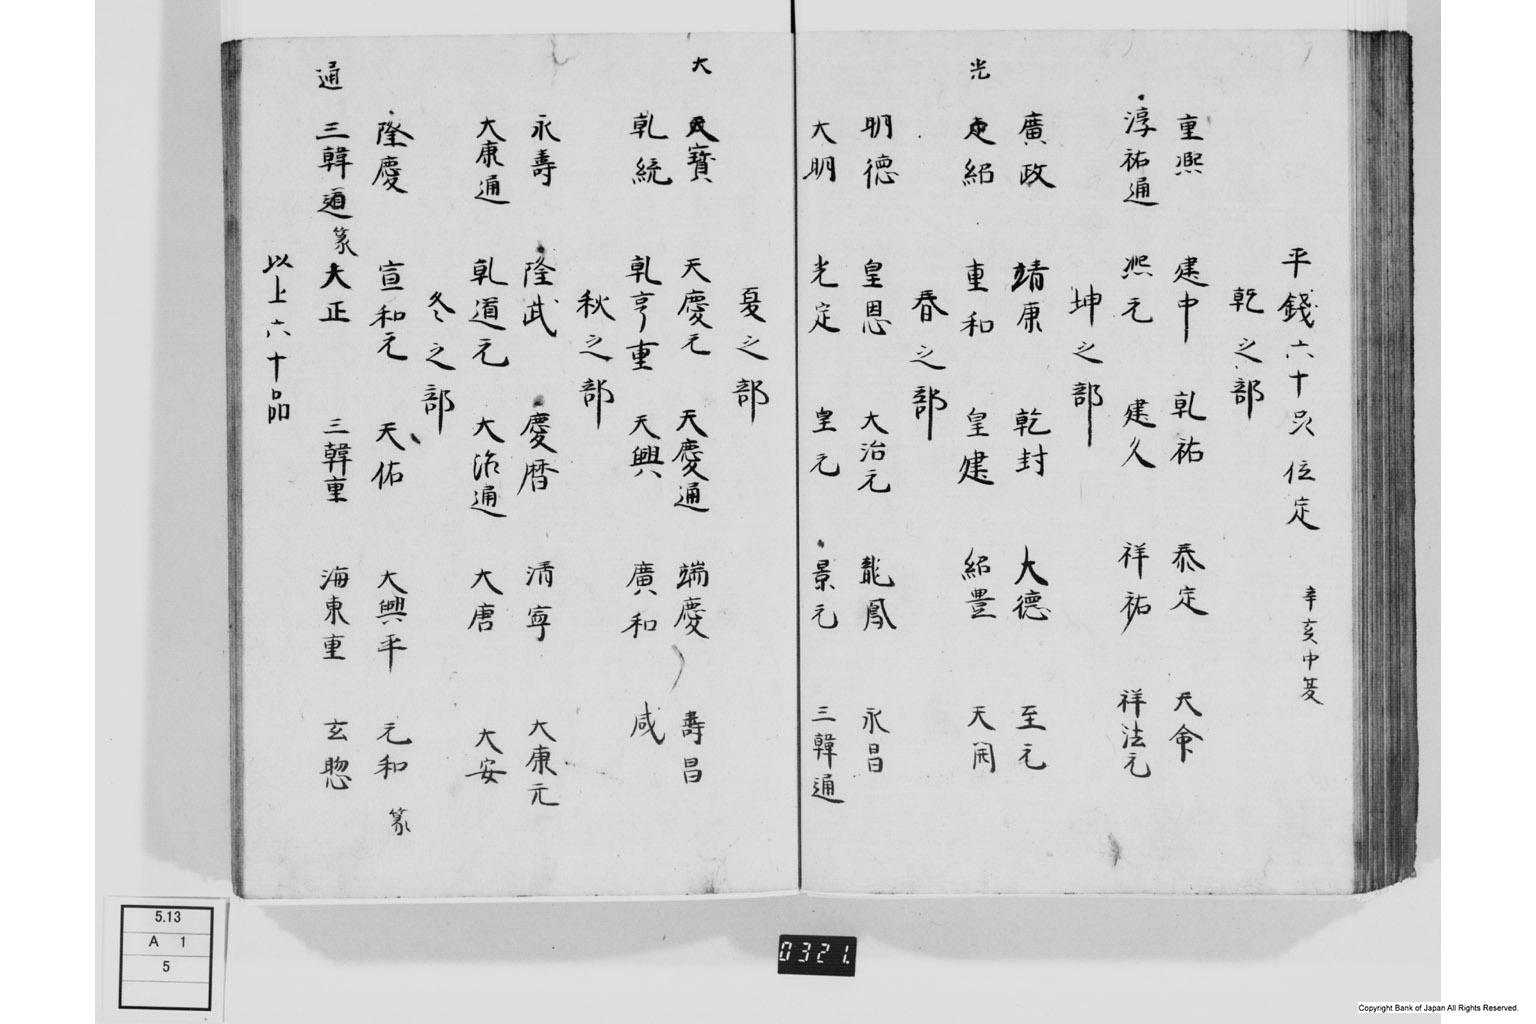 平錢六十品位定　辛亥中夏
乾之部
重熙　建中　乹祐　泰定　天命
淳祐通　熙元　建久　祥祐　祥法元
坤之部
廣政　靖康　乾封　大德　至元
光
定紹　重和　皇建　紹豊　天闲
春之部
明德　皇恩　大治元　龍鳳　永昌
大明　光定　皇元　景元　三韓通
夏之部
大
寳　天慶元　天慶通　端慶　壽昌
乹統　乹亨重　天興　廣和　咸
秋之部
永壽　隆武　慶暦　清寧　大康元
大康通　乹道元　大治通　大唐　大安
冬之部
隆慶　宣和元　天佑　大興平　元和篆
通
三韓通篆　大正　三韓重　海東重　玄聡
以上六十品
5.13
A 1
5
0321.
Copyright Bank of Japan All Rights Reserved.